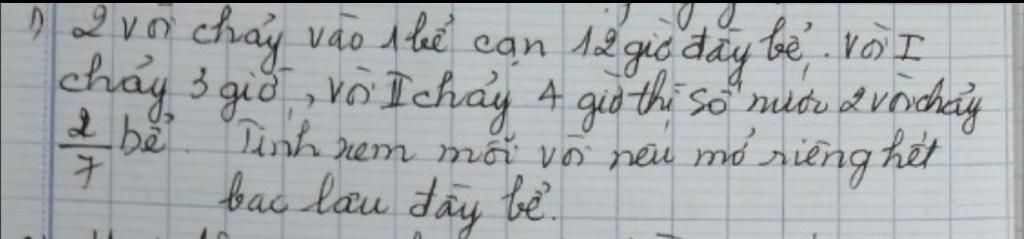 1) 2 vòi chảy vào 1 bể cạn 12 giờ đầy bể. Vòi I
chảy 3 giờ, vòi II chảy 4 giờ thì số nước 2 vòi chảy
2/7 bể. Tính xem mỗi vòi nếu mở riêng hết
bao lâu đầy bể.